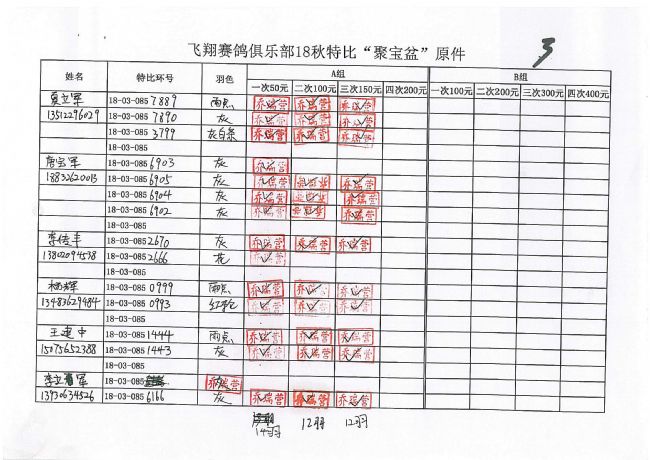 飞翔赛鸽俱乐部18秋特比“聚宝盆”原件 3
姓名 特比环号 羽色 A组 B组
一次50元 二次100元 三次150元 四次200元 一次100元 二次200元 三次300元 四次400元
夏立军 18-03-085 7889 雨点 乔瑞营 乔瑞营 乔瑞营
13512296029 18-03-085 7890 灰 乔瑞营 乔瑞营 乔瑞营
18-03-085 3799 灰白条 乔瑞营 乔瑞营 乔瑞营
18-03-085
唐宝军 18-03-085 6903 灰 乔瑞营
18832620013 18-03-085 6905 灰 乔瑞营 乔瑞营 乔瑞营
18-03-085 6904 灰 乔瑞营 乔瑞营 乔瑞营
18-03-085 6902 灰 乔瑞营 乔瑞营 乔瑞营
18-03-085
18-03-085 2670 灰 乔瑞营 乔瑞营 乔瑞营
13802094538 18-03-085 2666 花 乔瑞营
18-03-085
杨辉 18-03-085 0999 雨点 乔瑞营 乔瑞营 乔瑞营
13483629484 18-03-085 0993 红轮 乔瑞营 乔瑞营 乔瑞营
18-03-085
王建中 18-03-085 1444 雨点 乔瑞营 乔瑞营 乔瑞营
15075652388 18-03-085 1443 灰 乔瑞营 乔瑞营 乔瑞营
18-03-085
李立军 18-03-085 乔瑞营
13930634526 18-03-085 6166 灰 乔瑞营 乔瑞营 乔瑞营
14羽 12羽 12羽